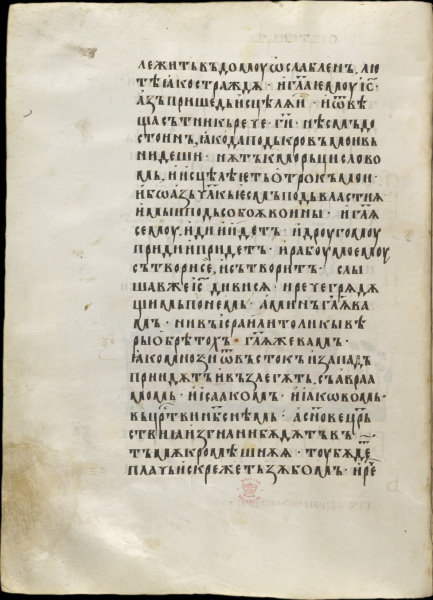 лежитъ въ домоу ѡслабленъ. лю
тѣ ꙗко страждѫ · и гла҃ емоу іс҃ ·
азъ пришедь исцѣлѧ и · и ѿвѣ
щасътникь рече · ги҃ · нѣсмъ до
стоинъ, ꙗко да подь кровъ мои вь
нидеши · нѫ тъкмо рьци слово
мь, и исцѣлѣеть ѡтрокъ мои ·
ибо азь чл҃кь есмъ подь властиѫ
имы и подь собоѫ воины · и гл҃ѧ
семоу, иди и идетъ · и дроугомоу
приди и придетъ · и рабоу моемоу
сътвори се, и сътворитъ · слы
шавже іс҃ дивисѧ · и рече грѧдѫ
щимь по немь · аминъ гл҃ѫ ва
мъ · ни въ ізраи҃ли толикы вѣ
ры обрѣтохъ · гл҃ѫ же вамъ ·
ꙗко мнози ѿ въстокъ и западъ
приидѫтъ и възлегѫтъ, съ авраа
момь · и ісаакомъ · и іꙗковомь ·
въ црт҃ви нб҃снѣмь · а сн҃ове црь҃
ствиа изгнани бѫдѫтъ въ
тъмѫ кромѣшнѫѫ · тоу бѫде҃
плачь и скрежеть зѫбомъ · и ре҃